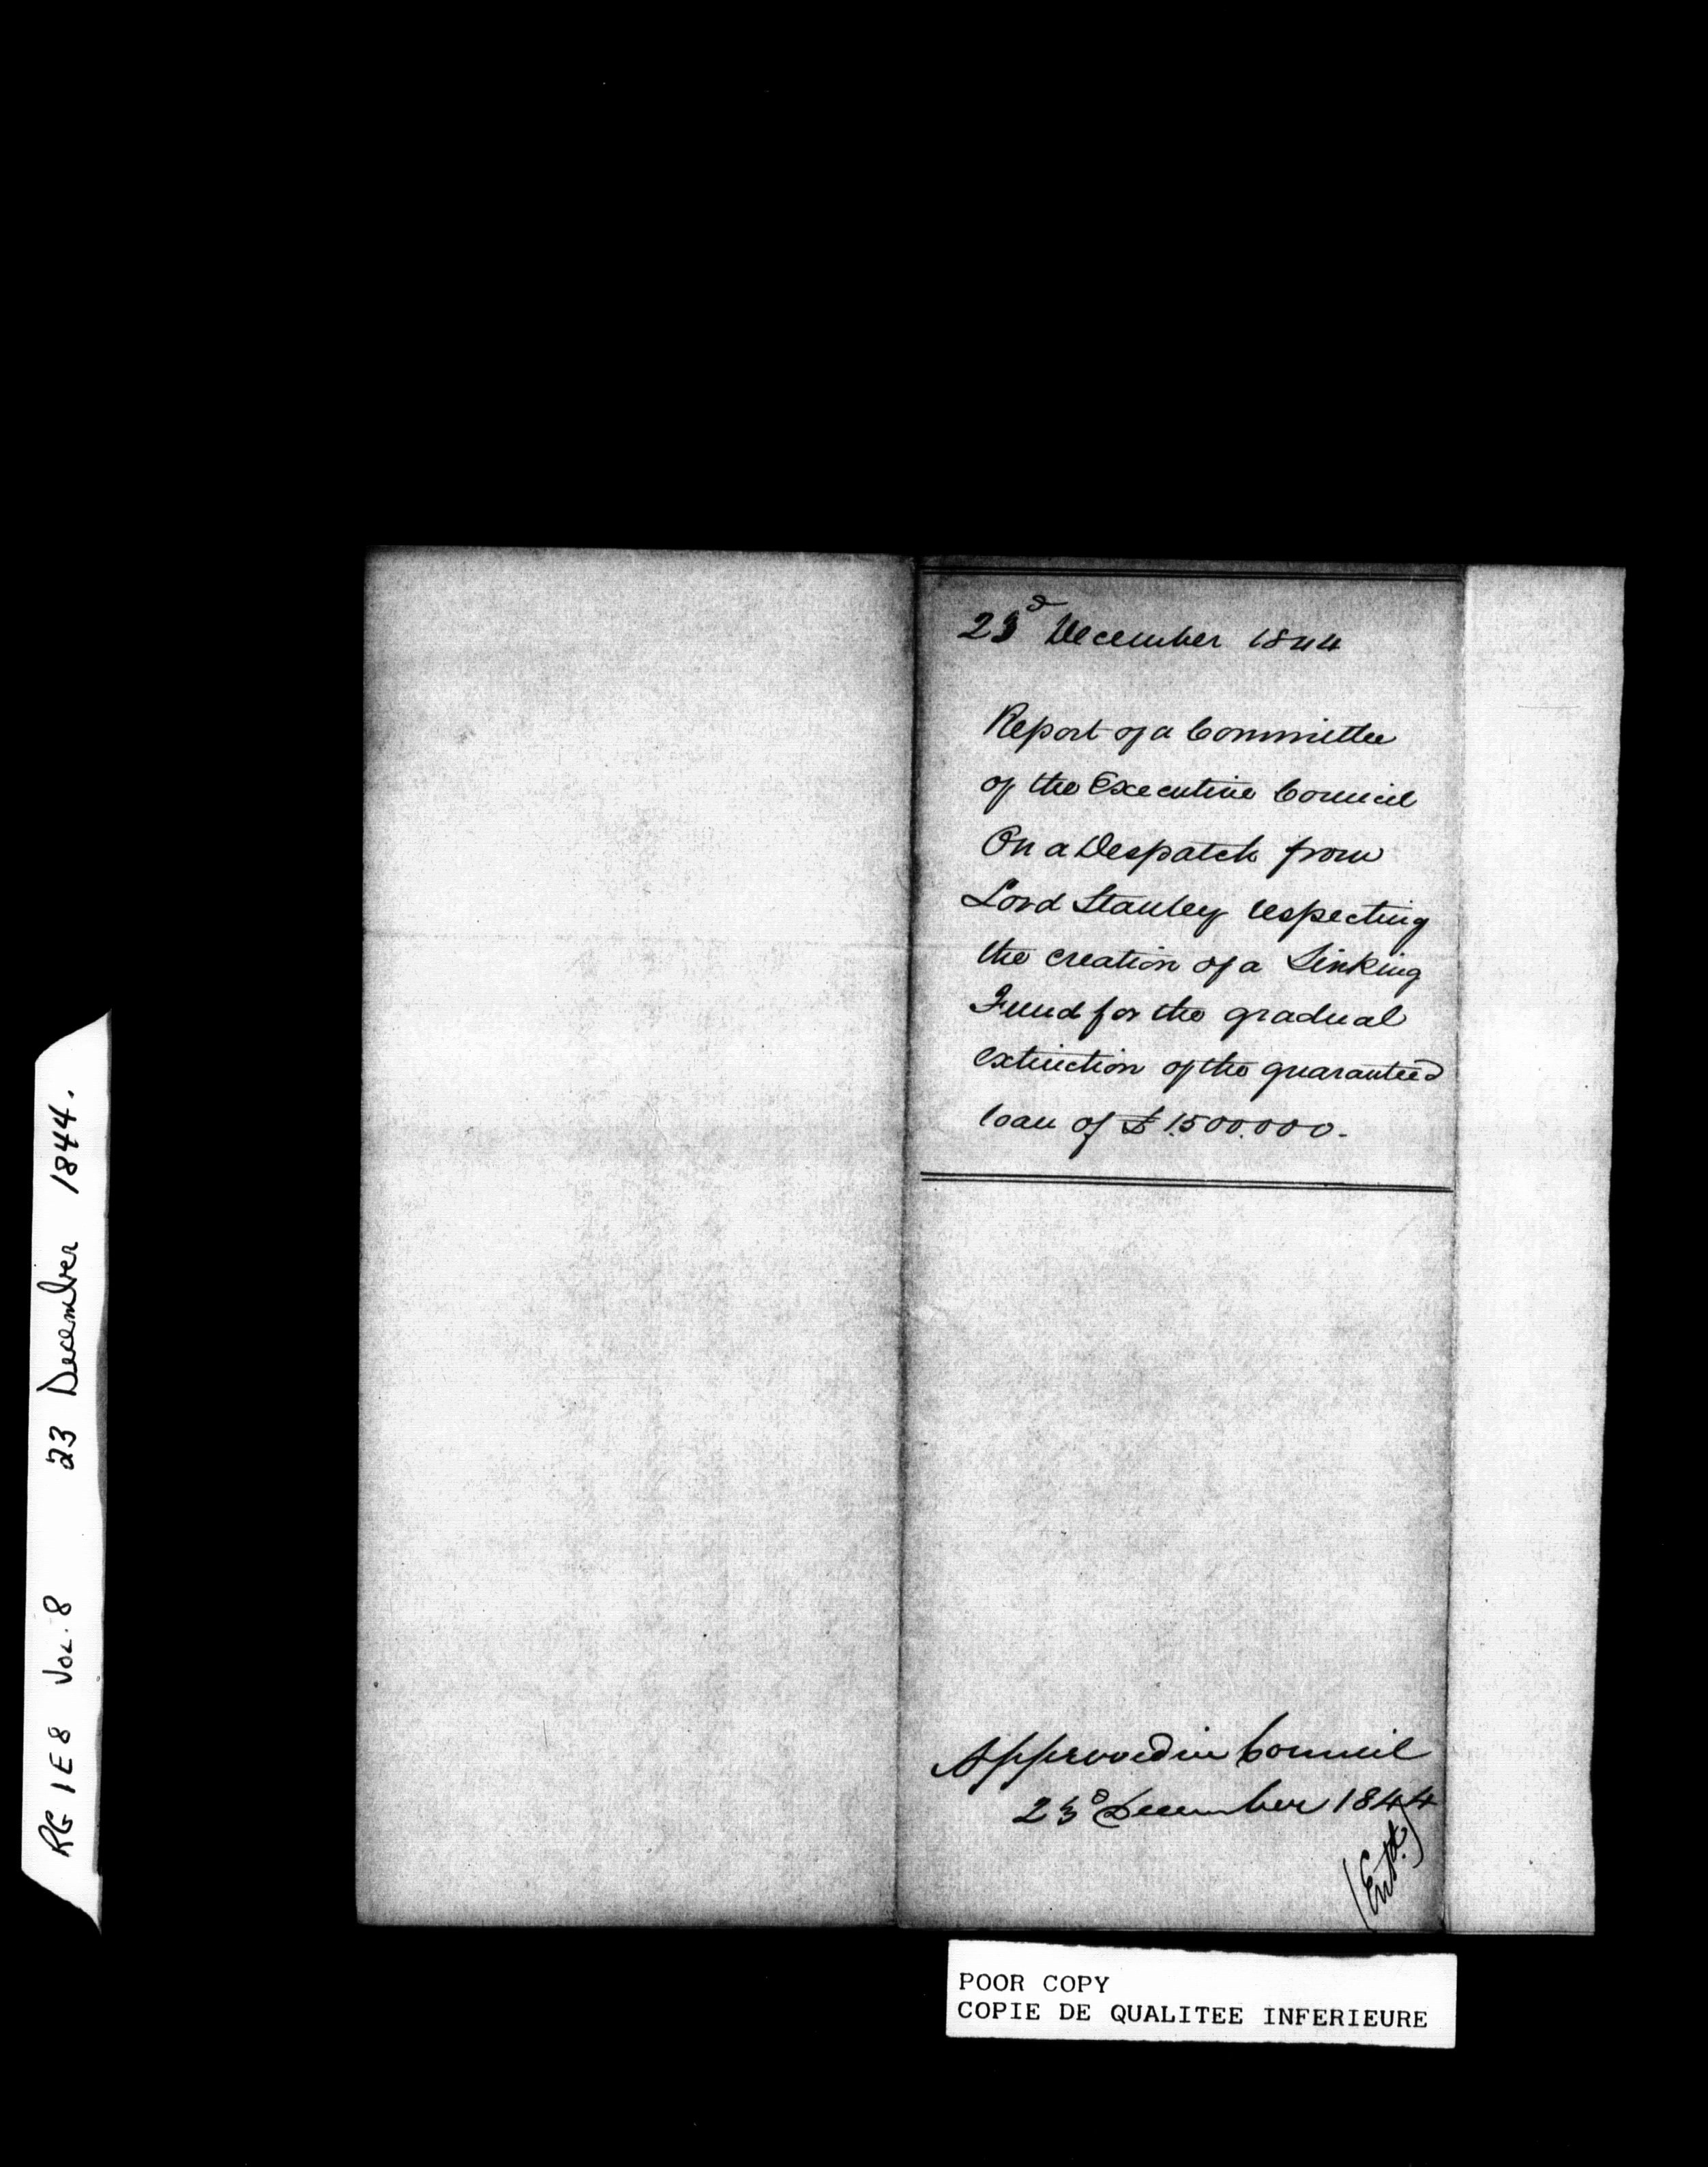 23d December 1844
Report of a Committee
of the Executive Council
On a Despatch from
Lord Stanley respecting
the creation of a Sinking
Fund for the gradual
extinction of the guaranteed
loan of £1.500.000.
Approved in Council
23d December 1844
(Entd.)
RG 1 E 8 VOL. 8 23 December 1844.
POOR COPY
COPIE DE QUALITEE INFERIEURE